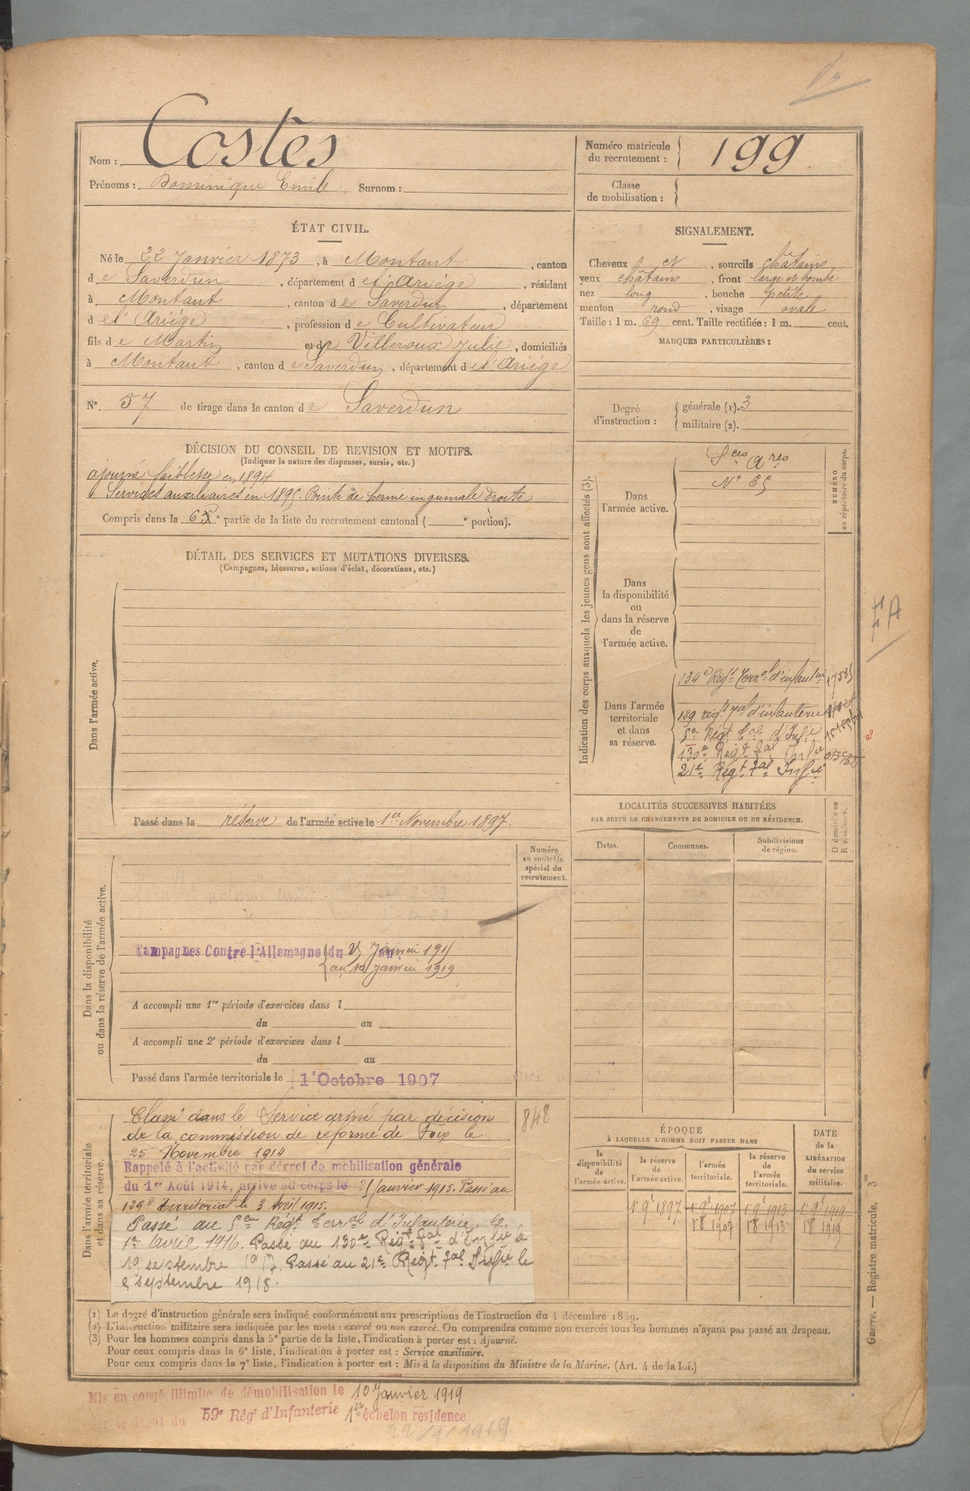 Nom : Costes
Prénoms : Dominique Emile Surnom :
Numéro matricule du recrutement : 199
Classe de mobilisation :
ÉTAT CIVIL.
Né le 22 Janvier 1873, à Montaut, canton
de Saverdun, département de l'Ariège, résidant
à Montaut, canton de Saverdun, département
de l'Ariège, profession de Cultivateur
fils de Martin et de Villeroux Julie, domiciliés
à Montaut, canton de Saverdun, département de l'Ariège
N°. 57 de tirage dans le canton de Saverdun
SIGNALEMENT.
Cheveux N, sourcils châtains
yeux châtains, front large et bombé
nez long, bouche petite
menton rond, visage ovale
Taille : 1 m. 69 cent. Taille rectifiée : 1 m. cent.
MARQUES PARTICULIÈRES :
Degré d'instruction : générale (1). 3
militaire (2).
DÉCISION DU CONSEIL DE REVISION ET MOTIFS.
(Indiquer la nature des dispenses, sursis, etc.)
ajourné faiblesse en 1894
Services auxiliaires en 1895. Pointe de hernie inguinale droite
Compris dans la 6e partie de la liste du recrutement cantonal ( e portion).
DÉTAIL DES SERVICES ET MUTATIONS DIVERSES.
(Campagnes, blessures, actions d'éclat, décorations, etc.)
Dans l'armée active.
Passé dans la réserve de l'armée active le 1er Novembre 1897.
Indication des corps auxquels les jeunes gens sont affectés (3).
NUMÉRO au répertoire du corps.
Dans l'armée active.
Sces Ares
N° 65
Dans la disponibilité ou dans la réserve de l'armée active.
Dans l'armée territoriale et dans sa réserve.
134e Régt Terral d'infanterie
139 régt tal d'infanterie
5e Régt Tal d'Infie
130e Régt Tal Infie
21e Régt Tal Infie
LOCALITÉS SUCCESSIVES HABITÉES
PAR SUITE DE CHANGEMENTS DE DOMICILE OU DE RÉSIDENCE.
Dates. Communes. Subdivisions de région.
D domicile ou R résidence.
Dans la disponibilité ou dans la réserve de l'armée active.
Numéro au contrôle spécial du recrutement.
Campagnes Contre l'Allemagne du 25 Janvier 1915
au 10 Janvier 1919
A accompli une 1re période d'exercices dans l
du au
A accompli une 2e période d'exercices dans l
du au
Passé dans l'armée territoriale le 1er Octobre 1907
Dans l'armée territoriale et dans sa réserve.
848
Classé dans le Service armé par décision
de la commission de réforme de Foix le
25 Novembre 1914
Rappelé à l'activité par décret de mobilisation générale
du 1er Août 1914, arrivé au corps le 25 Janvier 1915. Passé au
139e territorial le 3 Avril 1915.
Passé au 5eme Régt Terral d'Infanterie le
1er Avril 1916. Passé au 130e Régt Tal d'Infie le
10 septembre 1917. Passé au 21e Régt Tal Infie le
2 septembre 1918.
ÉPOQUE
À LAQUELLE L'HOMME DOIT PASSER DANS
la disponibilité de l'armée active.
la réserve de l'armée active.
l'armée territoriale.
la réserve de l'armée territoriale.
DATE de la LIBÉRATION du service militaire.
1 9e 1897 1 9e 1907 1 9e 1913 1 9e 1919
1 8 1907 1 8 1913 1 8 1919
(1) Le degré d'instruction générale sera indiqué conformément aux prescriptions de l'instruction du 4 décembre 1889.
(2) L'instruction militaire sera indiquée par les mots : exercé ou non exercé. On comprendra comme non exercés tous les hommes n'ayant pas passé au drapeau.
(3) Pour les hommes compris dans la 5e partie de la liste, l'indication à porter est : Ajourné.
Pour ceux compris dans la 6e liste, l'indication à porter est : Service auxiliaire.
Pour ceux compris dans la 7e liste, l'indication à porter est : Mis à la disposition du Ministre de la Marine. (Art. 4 de la loi.)
Mis en congé illimité de démobilisation le 10 Janvier 1919
par le dépôt du 59e Rég' d'Infanterie 1er échelon résidence
22/1/1919
Guerre. — Registre matricule. 3